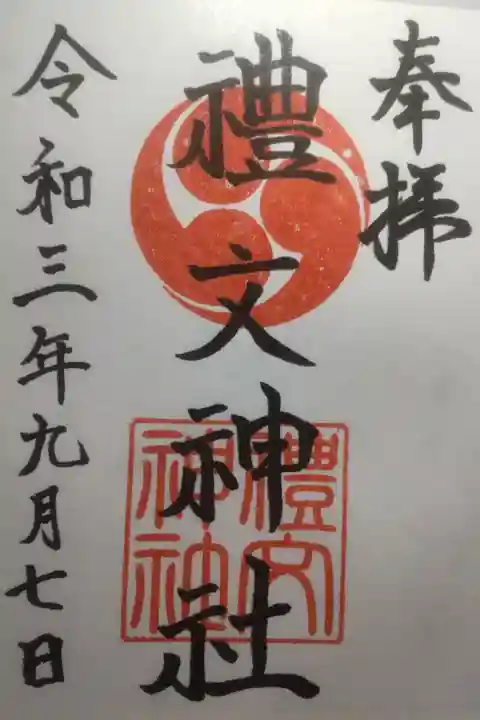 奉拝
禮文神社
禮文
神社
令和三年九月七日